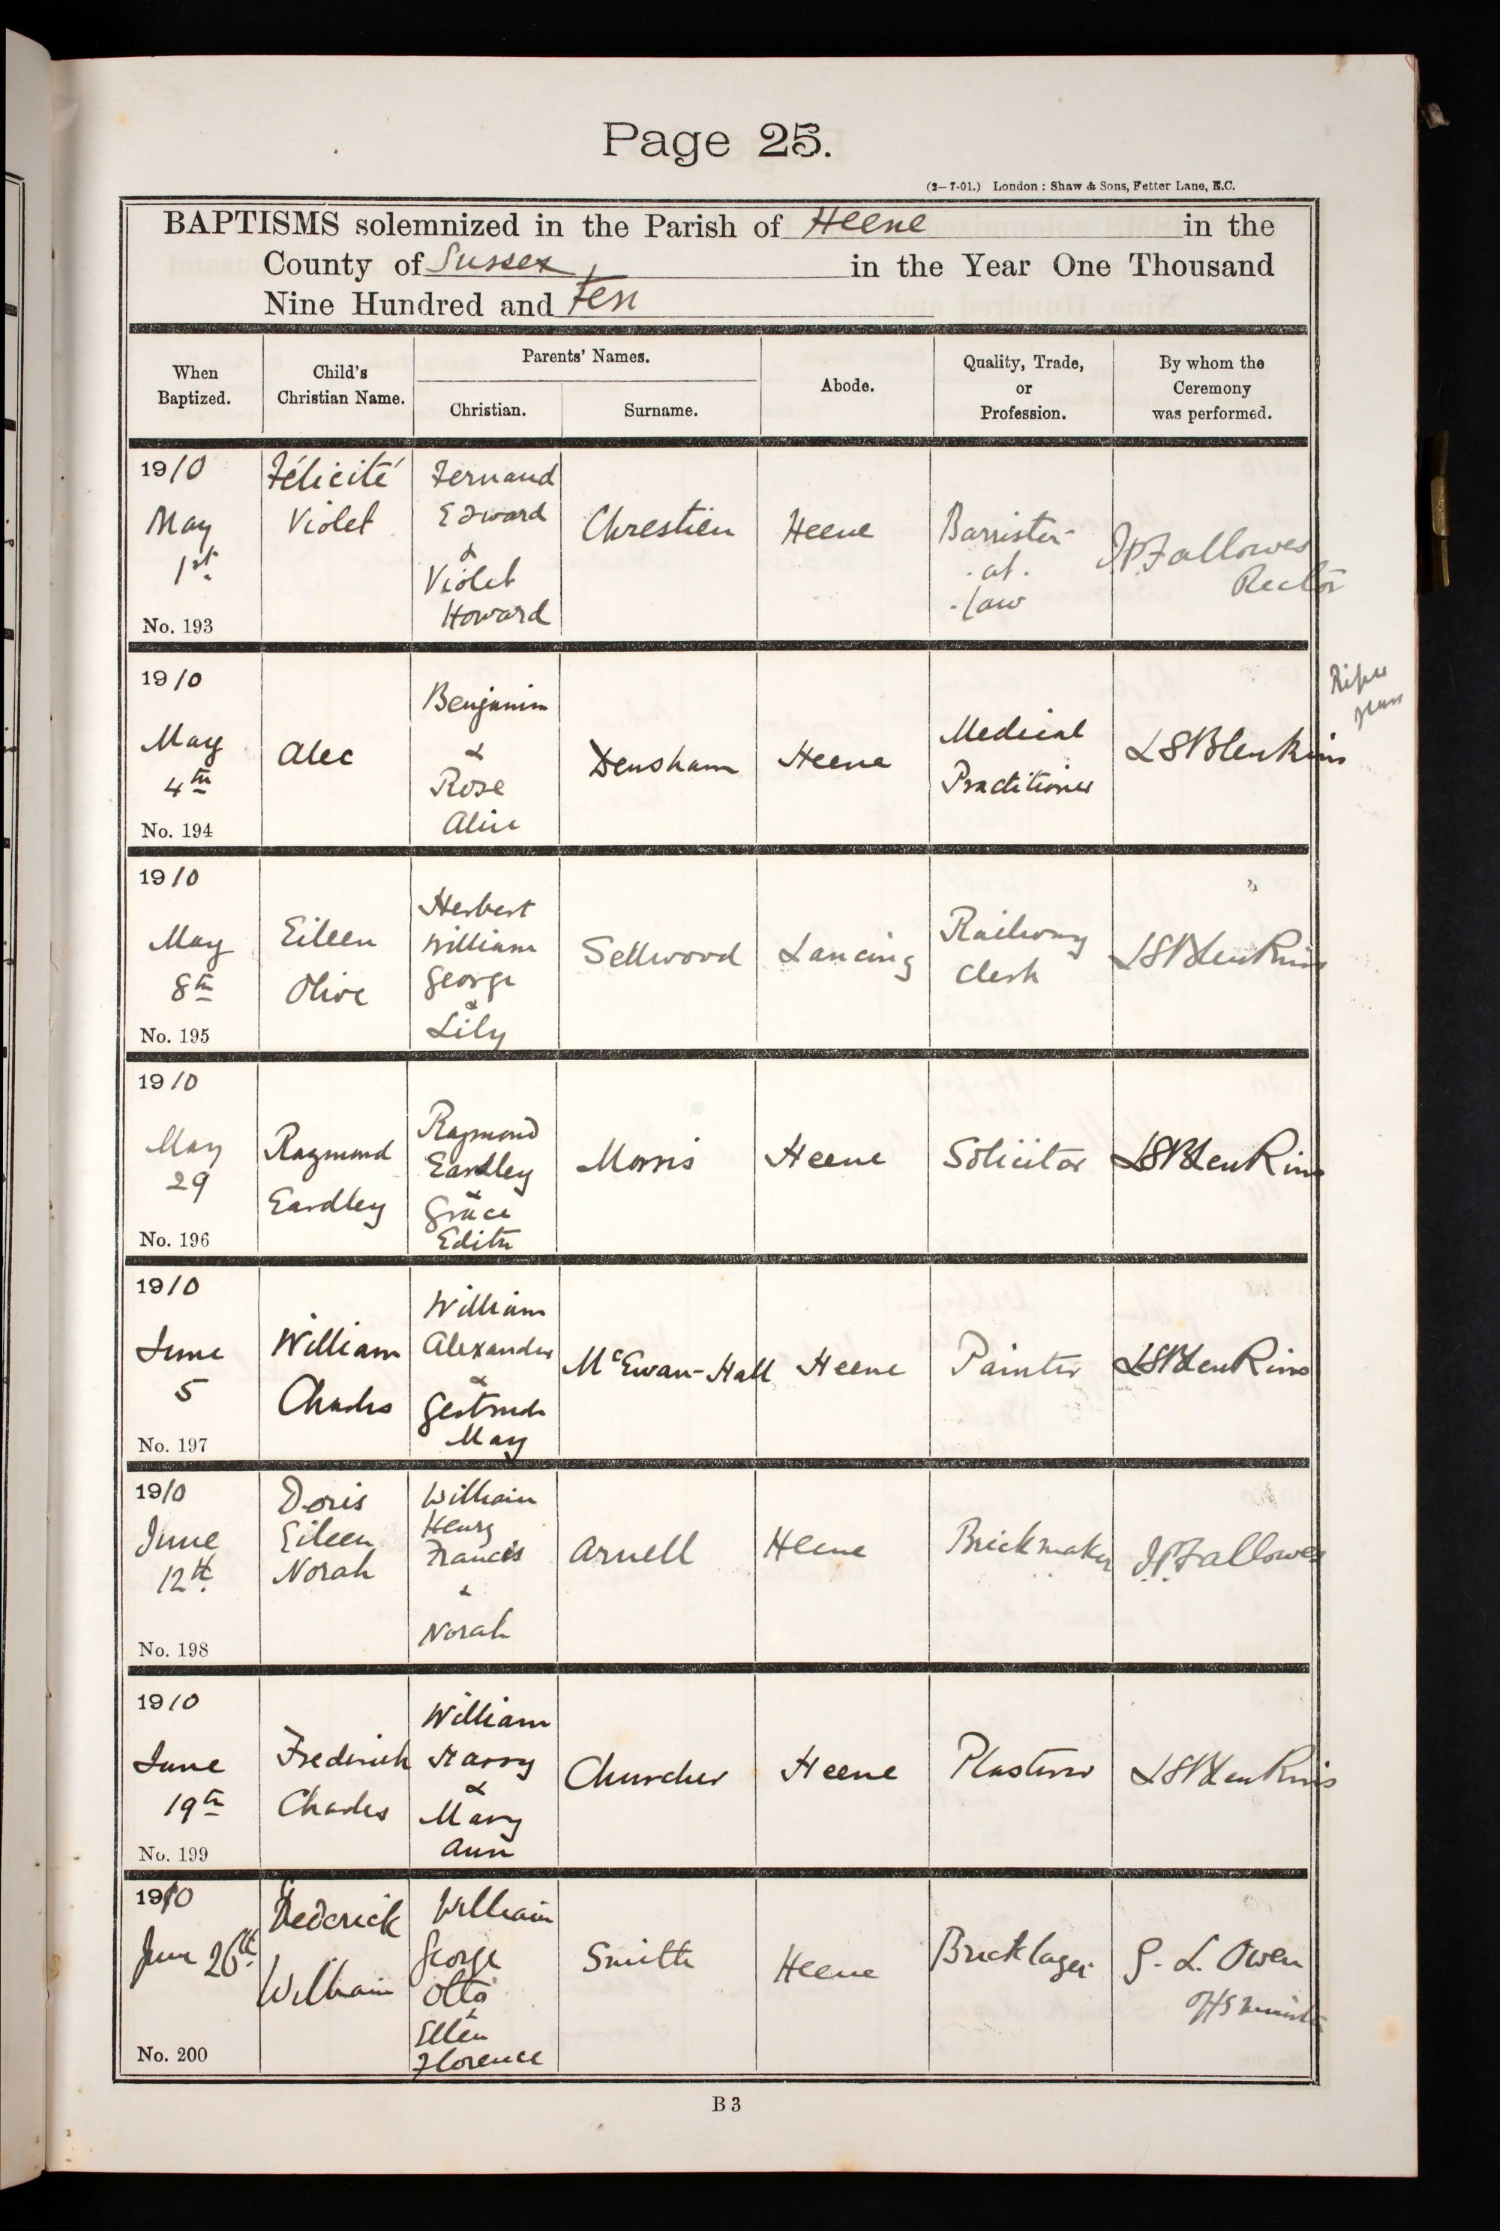 Page 25.
(2-7-01.) London: Shaw & Sons, Fetter Lane, E.C.
BAPTISMS solemnized in the Parish of Heene in the
County of Sussex, in the Year One Thousand
Nine Hundred and Ten
When Baptized.
Child's Christian Name.
Parents' Names.
Christian.
Surname.
Abode.
Quality, Trade, or Profession.
By whom the Ceremony was performed.
1910
May
1st.
No. 193
Félicité
Violet
Fernand
Edward
&
Violet
Howard
Chrestien
Heene
Barrister-
-at-
-law
J.P. Fallowes
Rector
1910
May
4th
No. 194
Alec
Benjamin
&
Rose
Alice
Densham
Heene
Medical
Practitioner
LSBlenkins
1910
May
8th
No. 195
Eileen
Olive
Herbert
William
George
&
Lily
Sellwood
Lancing
Railway
Clerk
LSBlenkins
1910
May
29
No. 196
Raymond
Eardley
Raymond
Eardley
&
Grace
Edith
Morris
Heene
Solicitor
LSBlenkins
1910
June
5
No. 197
William
Charles
William
Alexander
&
Gertrude
May
McEwan-Hall
Heene
Painter
LSBlenkins
1910
June
12th.
No. 198
Doris
Eileen
Norah
William
Henry
Francis
&
Norah
Arnell
Heene
Brickmaker
J.P. Fallowes
1910
June
19th
No. 199
Frederick
Charles
William
Harry
&
Mary
Ann
Churcher
Heene
Plasterer
LSBlenkins
1910
June 26th.
No. 200
Frederick
William
William
George
Otto
&
Ellen
Florence
Smith
Heene
Bricklayer
G. L. Owen
Off Minister
B 3